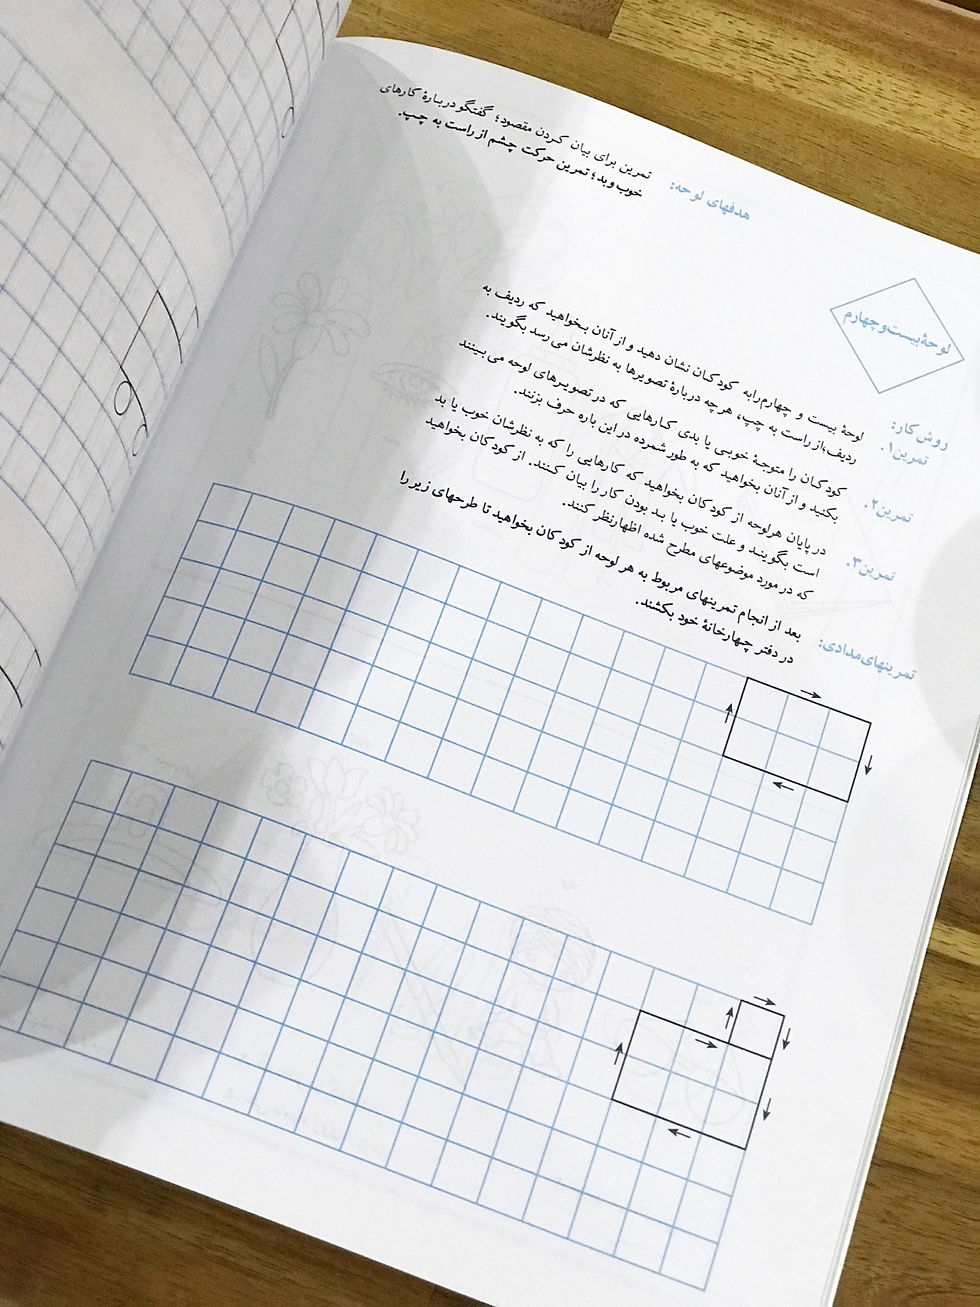 هدفهای لوحه: تمرین برای بیان کردن مقصود؛ گفتگو دربارهٔ کارهای
خوب و بد؛ تمرین حرکت چشم از راست به چپ.
لوحهٔ بیست و چهارم
روش کار:
تمرین۱. لوحهٔ بیست و چهارم را به کودکان نشان دهید و از آنان بخواهید که ردیف به
ردیف، از راست به چپ، هر چه دربارهٔ تصویرها به نظرشان می رسد بگویند.
تمرین۲. کودکان را متوجهٔ خوبی یا بدی کارهایی که در تصویرهای لوحه می بینند
بکنید و از آنان بخواهید که به طور شمرده در این باره حرف بزنند.
تمرین۳. در پایان هر لوحه از کودکان بخواهید که کارهایی را که به نظرشان خوب یا بد
است بگویند و علت خوب یا بد بودن کار را بیان کنند. از کودکان بخواهید
که در مورد موضوعهای مطرح شده اظهارنظر کنند.
تمرینهای مدادی: بعد از انجام تمرینهای مربوط به هر لوحه از کودکان بخواهید تا طرحهای زیر را
در دفتر چهارخانهٔ خود بکشند.